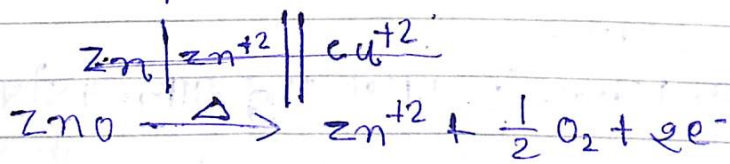 Zn|Zn⁺²||Cu⁺²
ZnO —Δ→ Zn⁺² + 1/2 O₂ + 2e⁻